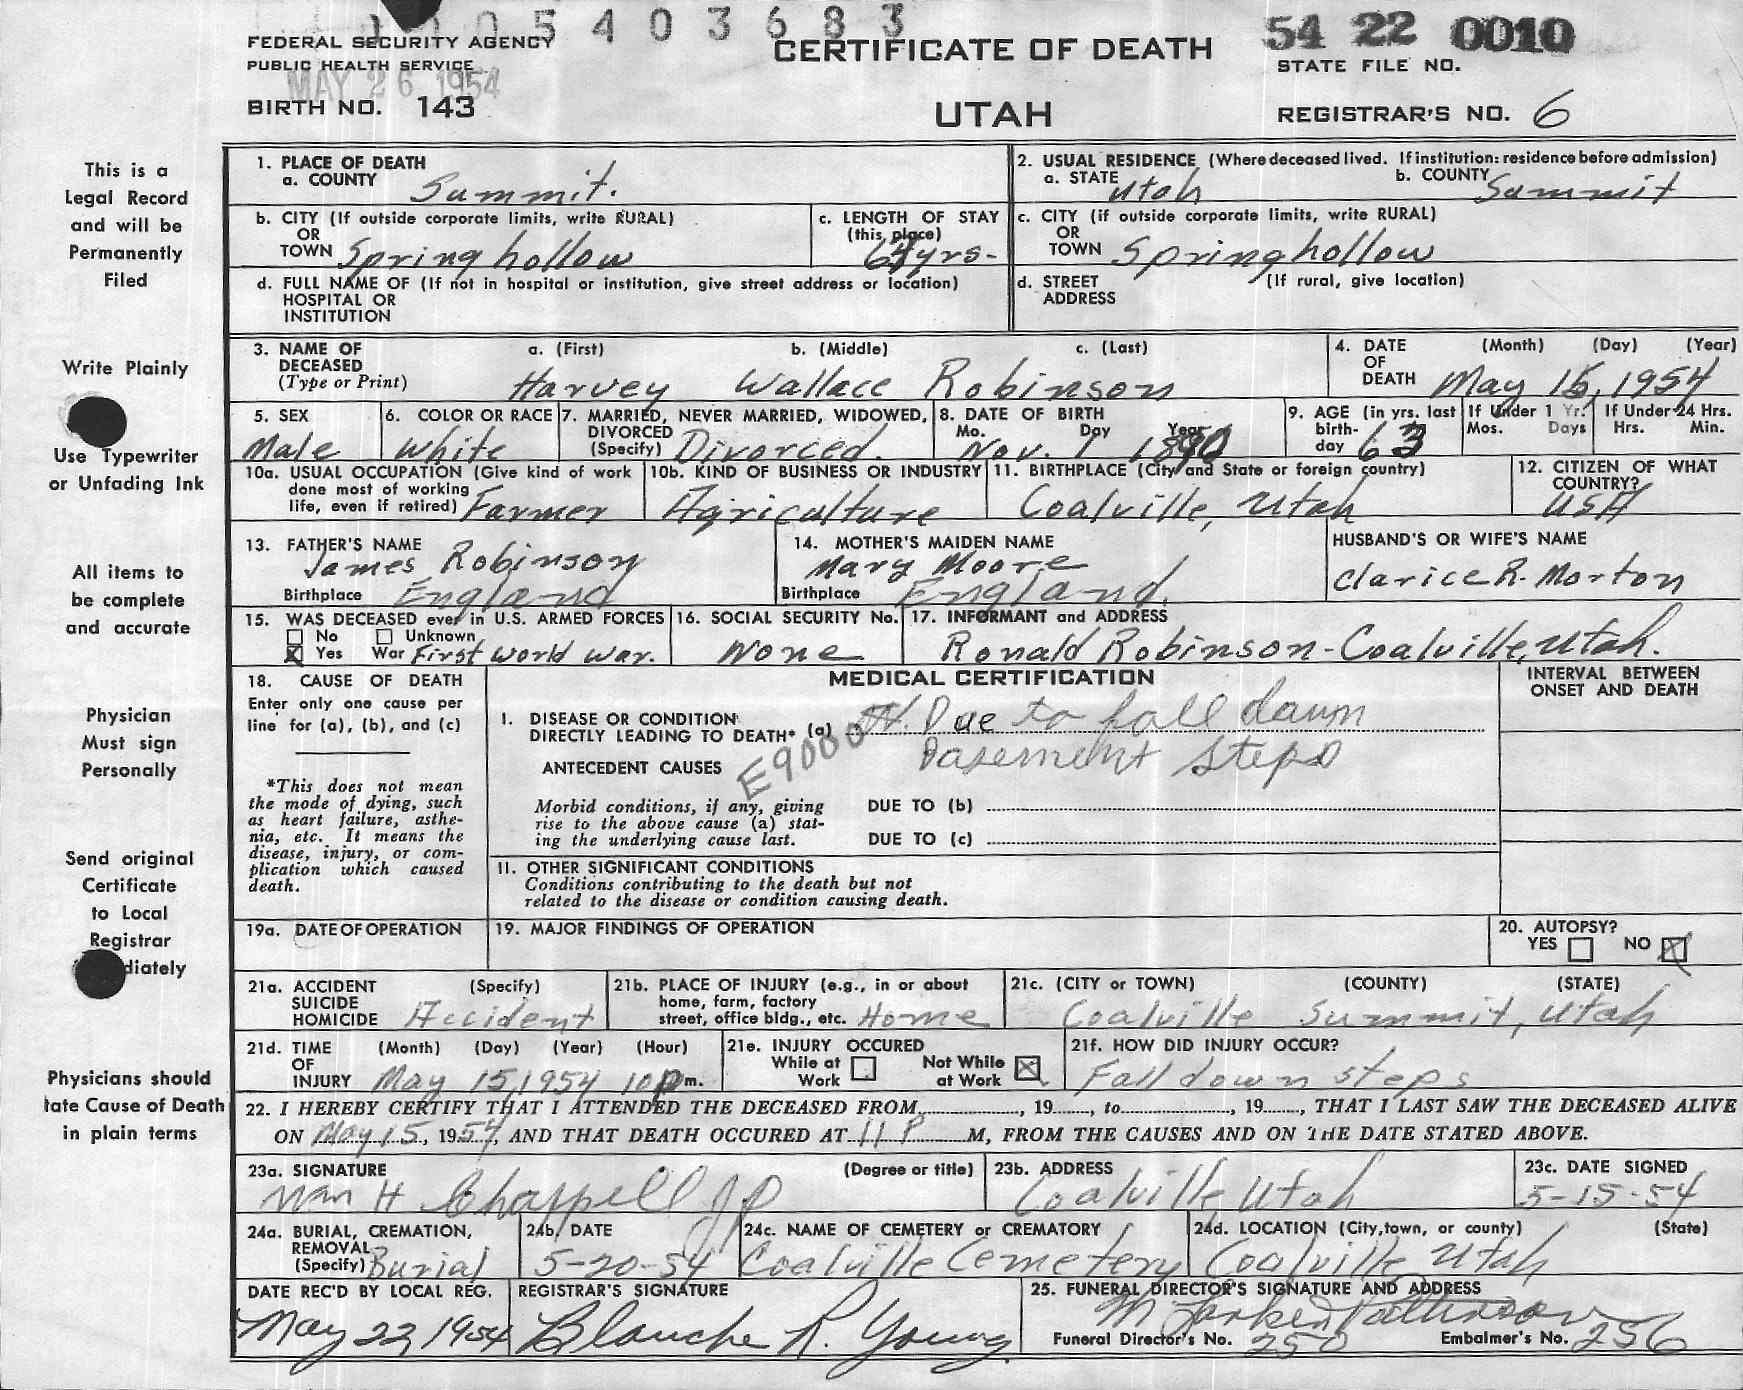 1005403683
54 22 0010
FEDERAL SECURITY AGENCY
PUBLIC HEALTH SERVICE
MAY 26 1954
CERTIFICATE OF DEATH
STATE FILE NO.
BIRTH NO. 143
UTAH
REGISTRAR'S NO. 6
This is a
Legal Record
and will be
Permanently
Filed
Write Plainly
Use Typewriter
or Unfading Ink
All items to
be complete
and accurate
Physician
Must sign
Personally
Send original
Certificate
to Local
Registrar
diately
Physicians should
tate Cause of Death
in plain terms
1. PLACE OF DEATH
a. COUNTY Summit.
2. USUAL RESIDENCE (Where deceased lived. If institution: residence before admission)
a. STATE Utah b. COUNTY Summit
b. CITY (If outside corporate limits, write RURAL)
OR
TOWN Spring hollow
c. LENGTH OF STAY
(this place)
yrs.
c. CITY (if outside corporate limits, write RURAL)
OR
TOWN Spring hollow
d. FULL NAME OF (If not in hospital or institution, give street address or location)
HOSPITAL OR
INSTITUTION
d. STREET (If rural, give location)
ADDRESS
3. NAME OF DECEASED (Type or Print)
a. (First) b. (Middle) c. (Last)
Harvey Wallace Robinson
4. DATE OF DEATH (Month) (Day) (Year)
May 15, 1954
5. SEX
Male
6. COLOR OR RACE
White
7. MARRIED, NEVER MARRIED, WIDOWED,
DIVORCED
(Specify) Divorced.
8. DATE OF BIRTH
Mo. Day Year
Nov. 1 1890
9. AGE (in yrs. last
birth-
day 63
If Under 1 Yr.
Mos. Days
If Under 24 Hrs.
Hrs. Min.
10a. USUAL OCCUPATION (Give kind of work
done most of working
life, even if retired) Farmer
10b. KIND OF BUSINESS OR INDUSTRY
Agriculture
11. BIRTHPLACE (City and State or foreign country)
Coalville, Utah
12. CITIZEN OF WHAT
COUNTRY?
USA
13. FATHER'S NAME
James Robinson
Birthplace England
14. MOTHER'S MAIDEN NAME
Mary Moore
Birthplace England.
HUSBAND'S OR WIFE'S NAME
Clarice R. Morton
15. WAS DECEASED ever in U.S. ARMED FORCES
No Unknown
Yes War First World War.
16. SOCIAL SECURITY No.
None
17. INFORMANT and ADDRESS
Ronald Robinson - Coalville, Utah.
18. CAUSE OF DEATH
Enter only one cause per
line for (a), (b), and (c)
*This does not mean
the mode of dying, such
as heart failure, asthe-
nia, etc. It means the
disease, injury, or com-
plication which caused
death.
MEDICAL CERTIFICATION
INTERVAL BETWEEN
ONSET AND DEATH
I. DISEASE OR CONDITION
DIRECTLY LEADING TO DEATH* (a) Due to fall down
Basement steps
E9000
ANTECEDENT CAUSES
Morbid conditions, if any, giving
rise to the above cause (a) stat-
ing the underlying cause last.
DUE TO (b)
DUE TO (c)
II. OTHER SIGNIFICANT CONDITIONS
Conditions contributing to the death but not
related to the disease or condition causing death.
19a. DATE OF OPERATION
19. MAJOR FINDINGS OF OPERATION
20. AUTOPSY?
YES NO
21a. ACCIDENT (Specify)
SUICIDE
HOMICIDE Accident
21b. PLACE OF INJURY (e.g., in or about
home, farm, factory
street, office bldg., etc. Home
21c. (CITY or TOWN) (COUNTY) (STATE)
Coalville Summit, Utah
21d. TIME (Month) (Day) (Year) (Hour)
OF
INJURY May 15, 1954 10 pm.
21e. INJURY OCCURED
While at Work
Not While at Work
21f. HOW DID INJURY OCCUR?
Fall down steps
22. I HEREBY CERTIFY THAT I ATTENDED THE DECEASED FROM , 19 , to , 19 , THAT I LAST SAW THE DECEASED ALIVE
ON May 15, 1954, AND THAT DEATH OCCURED AT 11 P M, FROM THE CAUSES AND ON THE DATE STATED ABOVE.
23a. SIGNATURE (Degree or title)
Wm H Chappell JP
23b. ADDRESS
Coalville, Utah
23c. DATE SIGNED
5-15-54
24a. BURIAL, CREMATION,
REMOVAL?
(Specify) Burial
24b. DATE
5-20-54
24c. NAME OF CEMETERY or CREMATORY
Coalville Cemetery
24d. LOCATION (City, town, or county) (State)
Coalville, Utah
DATE REC'D BY LOCAL REG.
May 22, 1954
REGISTRAR'S SIGNATURE
Blanche R. Young
25. FUNERAL DIRECTOR'S SIGNATURE AND ADDRESS
Funeral Director's No. 250 Embalmer's No. 256